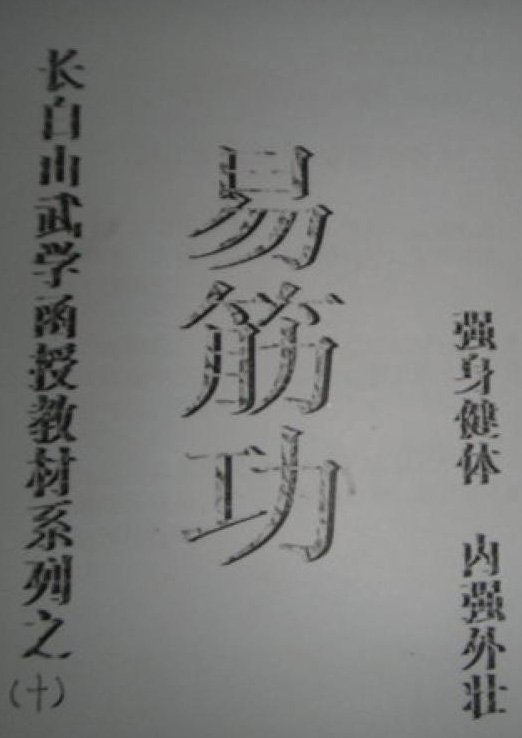 长白山武学函授教材系列之(十)
易筋功
强身健体 内强外壮